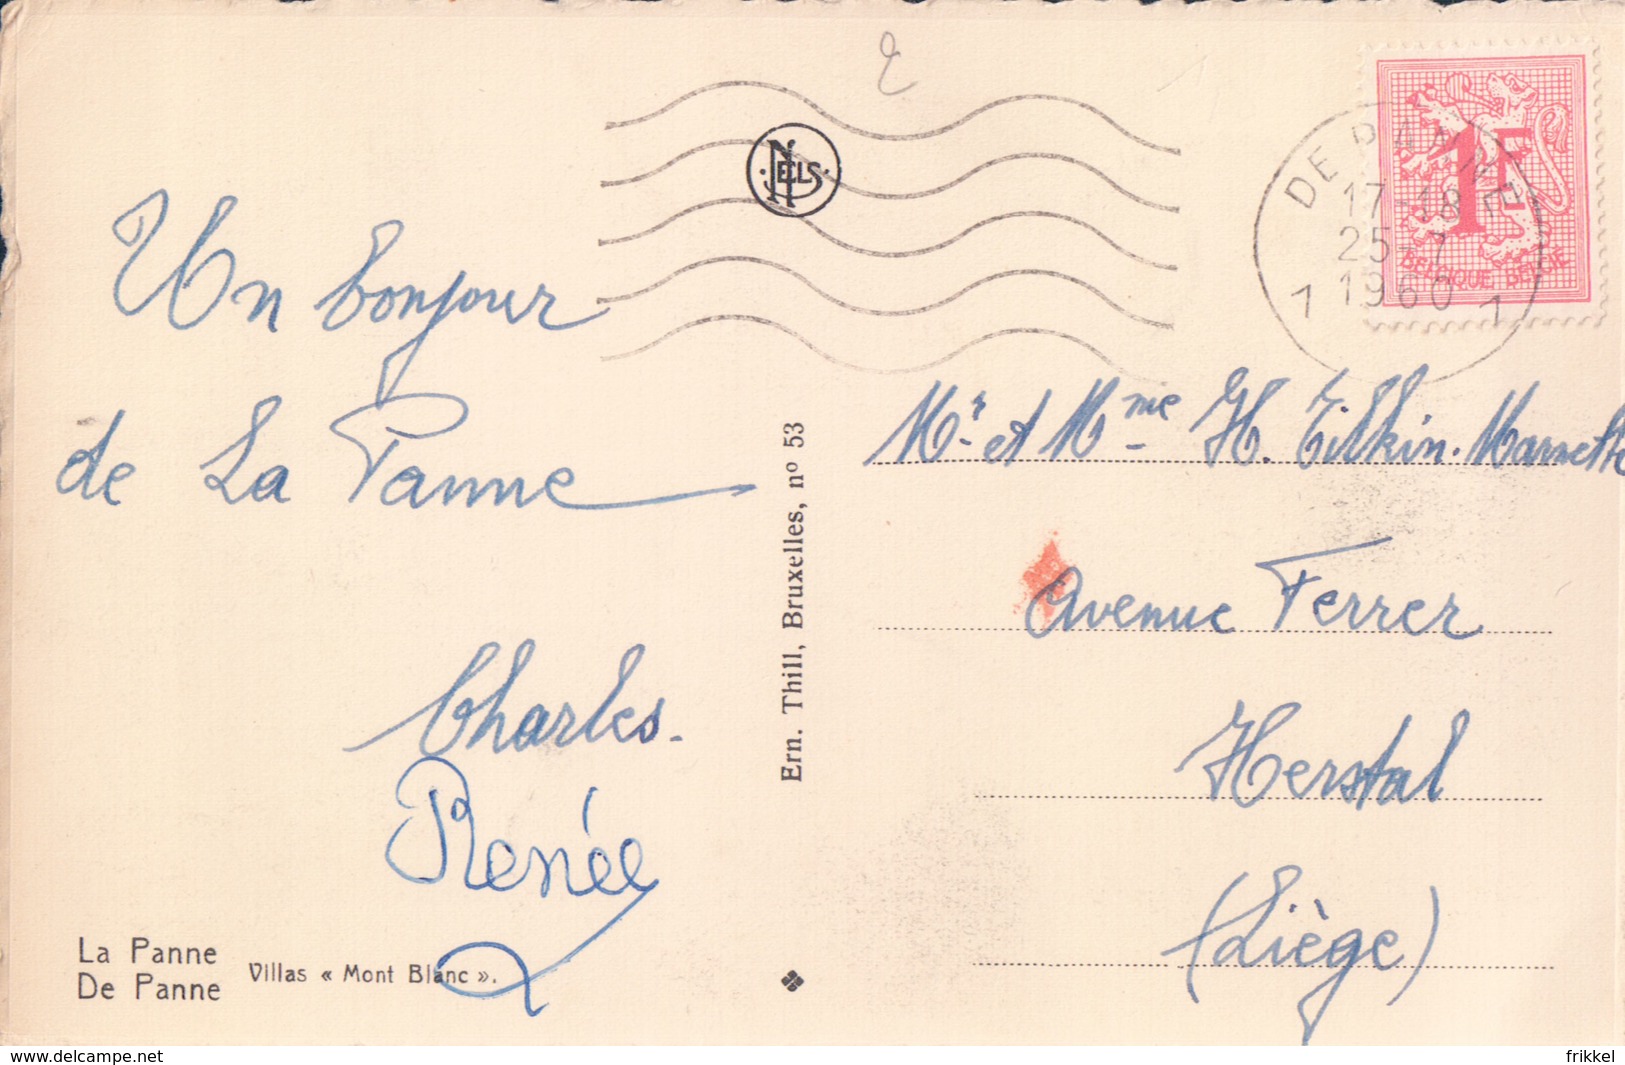 Un bonjour
de La Panne
Charles.
Renée
La Panne
De Panne
Villas « Mont Blanc ».
Ern. Thill, Bruxelles, nº 53
NELS
DE PANNE
17-18
25-7
1960
1 1
1F
BELGIQUE BELGIE
Mr. et Mme H. Tilkin-Marnette
Avenue Ferrer
Herstal
(Liège)
www.delcampe.net
frikkel